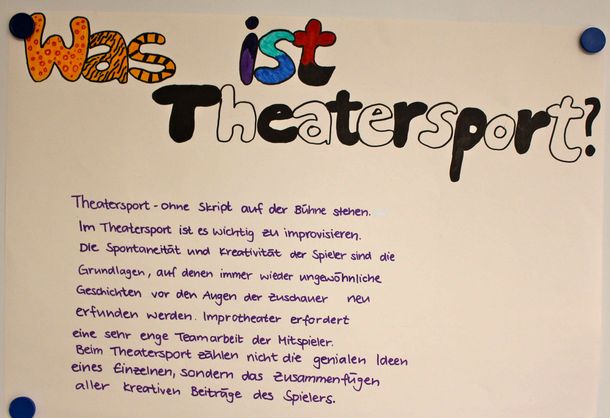 Was ist
Theatersport?
Theatersport - ohne Skript auf der Bühne stehen.
Im Theatersport ist es wichtig zu improvisieren.
Die Spontaneität und Kreativität der Spieler sind die
Grundlagen, auf denen immer wieder ungewöhnliche
Geschichten vor den Augen der Zuschauer neu
erfunden werden. Improtheater erfordert
eine sehr enge Teamarbeit der Mitspieler.
Beim Theatersport zählen nicht die genialen Ideen
eines Einzelnen, sondern das Zusammenfügen
aller kreativen Beiträge des Spielers.